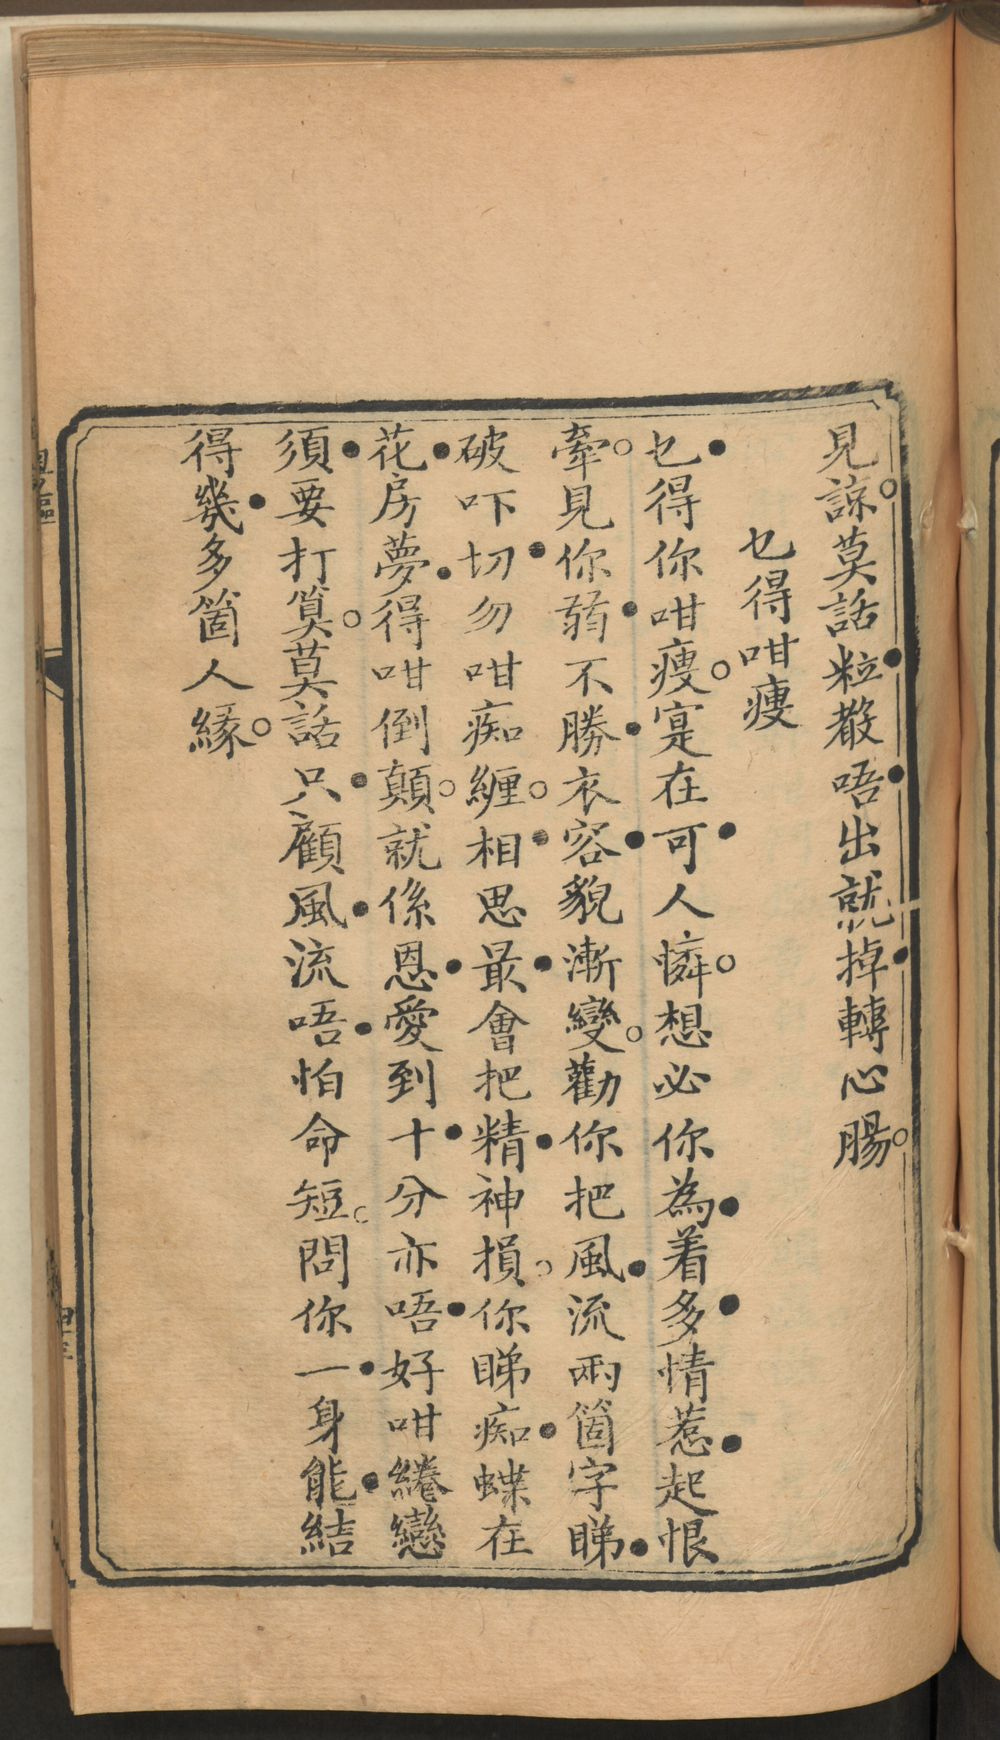 見諒。莫話粒散唔出就掉轉心腸。
乜得咁瘦
乜得你咁瘦。寔在可人憐。想必你為着多情惹起恨
牽。見你弱不勝衣容貌漸變。勸你把風流兩箇字睇
破吓切勿咁痴纏。相思最會把精神損。你睇痴蝶在
花房夢得咁倒顛。就係恩愛到十分亦唔好咁綣戀
須要打筭。莫話只顧風流唔怕命短。問你一身能結
得幾多箇人緣。